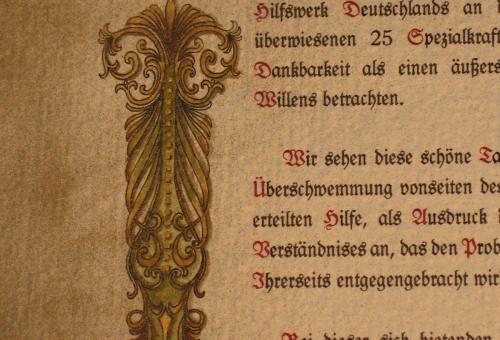 Hilfswerk Deutschlands an
überwiesenen 25 Spezialkraft
Dankbarkeit als einen äußers
Willens betrachten.
Wir sehen diese schöne Ta
Überschwemmung vonseiten des
erteilten Hilfe, als Ausdruck
Verständnises an, das den Prob
Ihrerseits entgegengebracht wir
Bei dieser sich bietenden